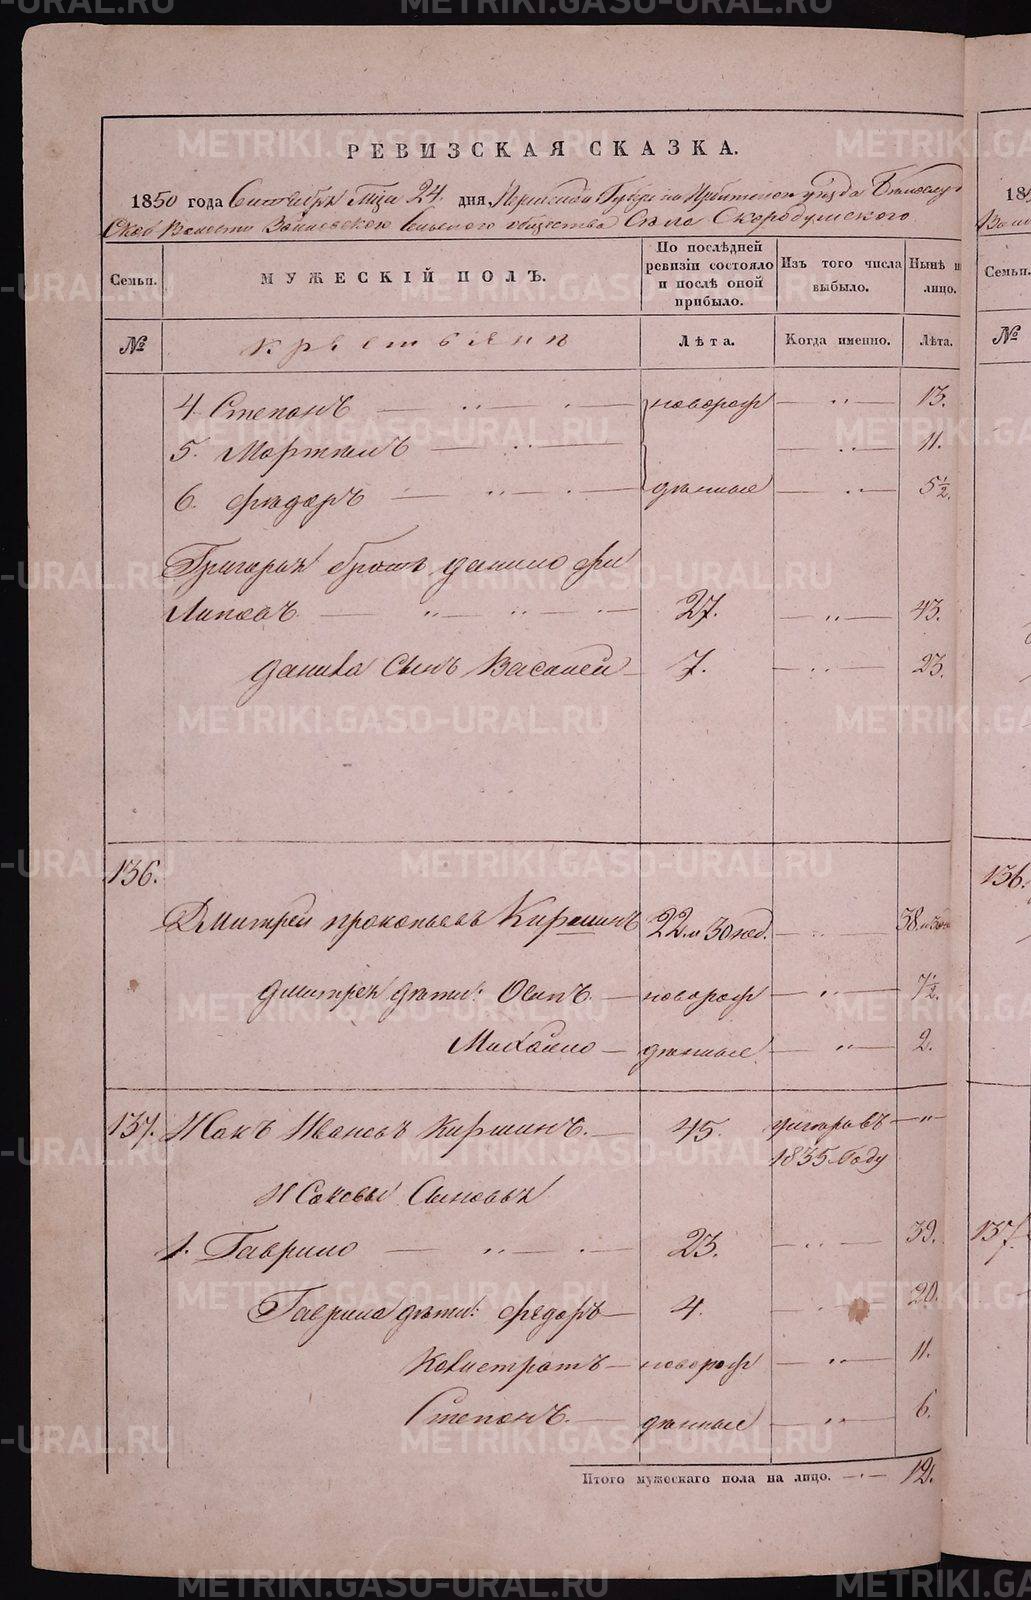 РЕВИЗСКАЯ СКАЗКА.
1850 года Сентября м-ца 24. дня Пермской Губерніи Ирбитскаго уѣзда Бѣлослуд
Ской Волости Сельскаго общества Села Скородумскаго
Семьи. МУЖЕСКІЙ ПОЛЪ. По послѣдней ревизіи состояло и послѣ оной прибыло. Изъ того числа выбыло. Нынѣ на лицо.
№ Крестьяне Лѣта. Когда именно. Лѣта.
4 Степанъ — новорож — „ — 13.
5. Мартинъ — „ — 11.
6. Федоръ — денные — „ — 5½.
Григорья братъ Данило Фи
липовъ — 27. — „ — 43.
Данила Сынъ Василей — 7. — „ — 23.
136.
Дмитрей Прокопьевъ Киршинъ 22. и 30 нед. — „ — 38. и 30 не
Дмитрея дѣти: Осипъ — новорож — „ — 7½.
Михайло — денные — „ — 2.
137. Исакъ Ивановъ Киршинъ. — 45. умеръ въ 1835 Году — „
Исаковы Сыновья
1. Гаврило — „ — 23. — „ — 39.
Гаврила дѣти: Федоръ — 4. — 20.
Калистратъ — новорож — „ — 11.
Степанъ. — денные — „ — 6.
Итого мужескаго пола на лицо. — 12.
185
Семьи.
№
136.
137.
METRIKI.GASO-URAL.RU